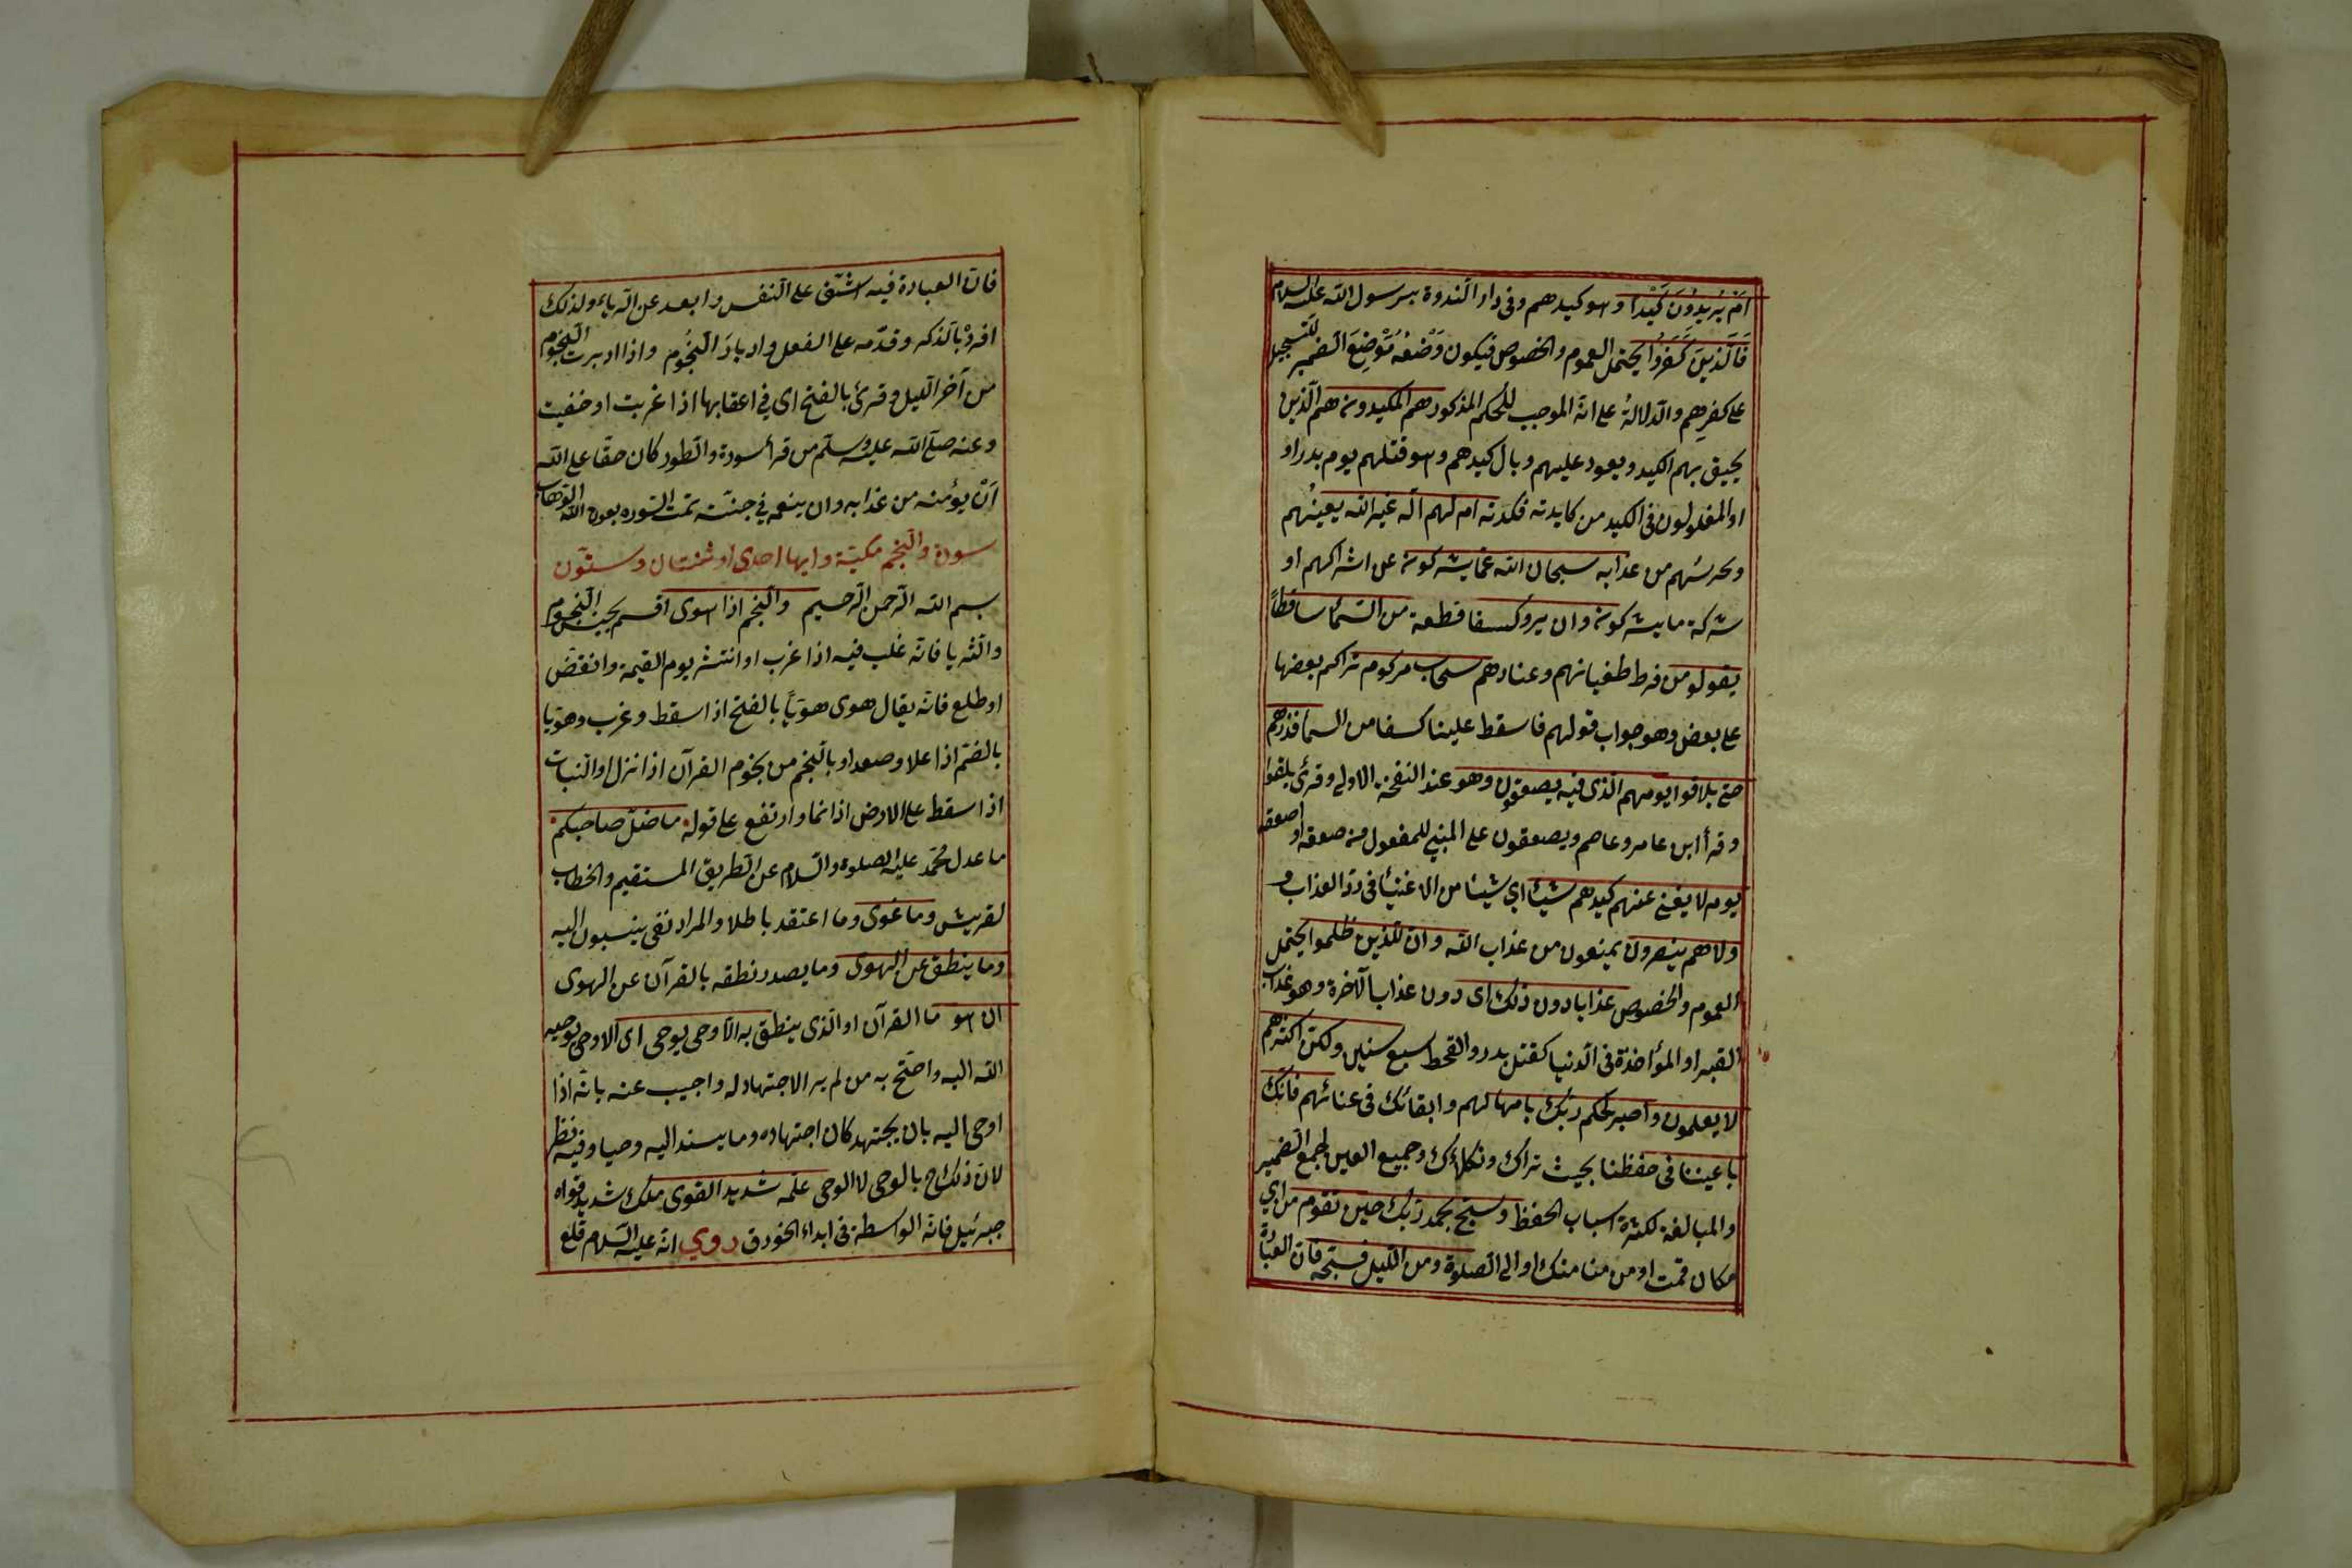 اَمْ يُرِيدُونَ كَيْدًا وهو كيدهم وفى دار الندوة برسول الله عليه السلام
فَالَّذِينَ كَفَرُوا يحتمل العموم والخصوص فيكون وَضْعُه مَوْضِعَ الضمير للتسجيل
على كفرِهِم والدلالةُ على انه الموجب للحكم المذكور هم المكيدون هم الذين
يحيق بهم الكيد ويعود عليهم وبال كيدهم وهو قتلهم يوم بدر او
او المغلولون فى الكيد من كايدته فكدته ام لهم اله غير الله يعينُهم
ويحرسُهم من عذابه سبحان الله عما يشركون عن اشراكهم او
شركة ما يشركون وان يروكسفا قطعة من السّمآ ساقطاً
يقولو من فرط طغيانهم وعنادهم سحاب مركوم تراكم بعضها
على بعض وهو جواب قولهم فاسقط علينا كسفا من السما فذرهم
حتى يلاقوا يومهم الذى فيه يصعقون وهو عند النفخة الاولى وقرئ يلقوا
وقرأ ابن عامر وعاصم ويصعقون على المبني للمفعول من صعقه او اصعقه
يوم لا يغنى عنهم كيدهم شيئا اي شيئا من الاغنيا فى ردّ العذاب و
ولا هم ينصرون يمنعون من عذاب الله وان للذين ظلموا يحتمل
العموم والخصوص عذابا دون ذلك اى دون عذاب الآخرة وهو عذاب
القبر او المؤاخذة فى الدنيا كقتل بدر والقحط سبع سنين ولكن اكثرهم
لا يعلمون واصبر لحكم ربك بامهالهم وابقائك فى عنائهم فانك
باعيننا فى حفظنا بحيث نراك ونكلؤك وجميع العين لجمع الضمير
والمبالغة لكثرة اسباب الحفظ وسبح بحمد ربك حين تقوم من اي
مكان قمت او من منامنك او الى الصلوة ومن الليل فسبحه فان العبادة
فان العبادة فيه اشق على النفس وابعد عن الريا ولذلك
افرد بالذكر وقدّمه على الفعل وادبارَ النُجُوم واذا ادبرت النجوم
من آخر الليل وقرئ بالفتح اى في اعقابها اذا غربت او خفيت
وعنه صلى الله عليه وسلم من قرأ سورة والطور كان حقا على الله
اَن يؤمنه من عذابه وان ينعمه في جنته تمت السوره بعون الله الوهاب
سورة والنجم مكية وايها احدى او ثنتان وستّون
بسم الله الرحمن الرحيم والنجم اذا هوى اقسم بجنس النجوم
والثريا فانه غلب فيه اذا غرب او انتثر يوم القيمة وانقض
او طلع فانه يقال هوى هويّاً بالفتح اذا سقط وغرب وهويا
بالضم اذا علا وصعد او بالنجم من نجوم القرآن اذا نزل او النبات
اذا سقط على الارض اذا نما وارتفع على قوله ما ضل صاحبكم
ما عدل محمّد عليه الصلوة والسلام عن الطريق المستقيم والخطاب
لقريش وما غوى وما اعتقد باطلا والمراد نفى ينسبون اليه
وما ينطق عن الهوى وما يصدر نطقه بالقرآن عن الهوى
ان هو ما القرآن او الذى ينطق به الا وحى يوحى اى الا وحى يوحيه
الله اليه واحتج به من لم ير الاجتهاد له واجيب عنه بانه اذا
اوحى اليه بان يجتهد كان اجتهاده وما يسند اليه وحيا وفيه نظر
لان ذلك ح بالوحى لا الوحى علمه شديد القوى ملك شديد قواه
جبرئيل فانه الواسطة فى ابداء الخورق روي انه عليه السلام قلع